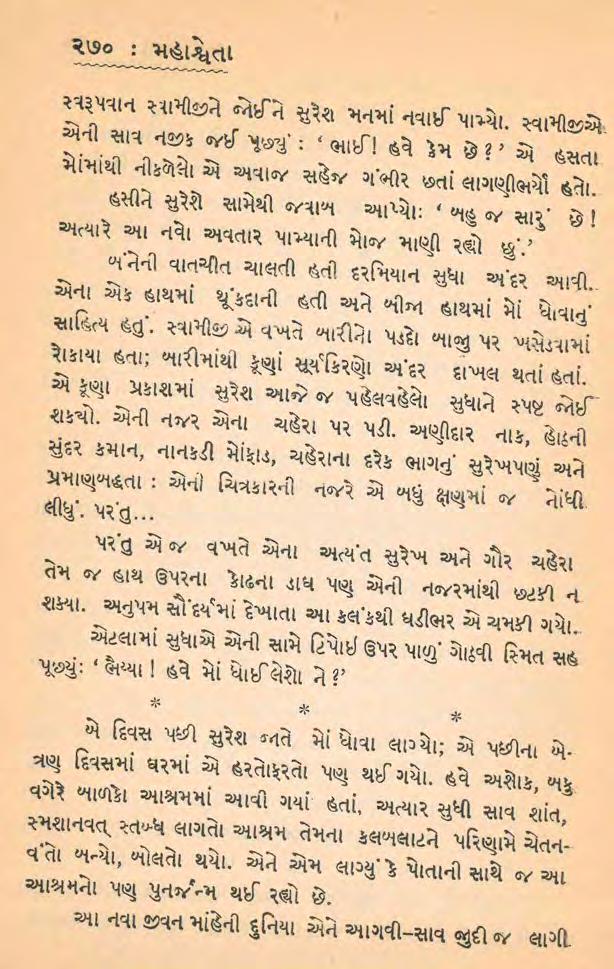 ૨૭૦ : મહાશ્વેતા
સ્વરૂપવાન સ્વામીજીને જોઈને સુરેશ મનમાં નવાઈ પામ્યો. સ્વામીજીએ
એની સાવ નજીક જઈ પૂછ્યું : ‘ ભાઈ! હવે કેમ છે?’ એ હસતા
મોંમાંથી નીકળેલો એ અવાજ સહેજ ગંભીર છતાં લાગણીભર્યો હતો.
હસીને સુરેશે સામેથી જવાબ આપ્યો: ‘ બહુ જ સારું છે!
અત્યારે આ નવો અવતાર પામ્યાની મોજ માણી રહ્યો છું.’
બંનેની વાતચીત ચાલતી હતી દરમિયાન સુધા અંદર આવી.
એના એક હાથમાં થૂંકદાની હતી અને બીજા હાથમાં મોં ધોવાનું
સાહિત્ય હતું. સ્વામીજી એ વખતે બારીનો પડદો બાજુ પર ખસેડવામાં
રોકાયા હતા; બારીમાંથી કૂણાં સૂર્યકિરણો અંદર દાખલ થતાં હતાં.
એ કૂણા પ્રકાશમાં સુરેશ આજે જ પહેલવહેલો સુધાને સ્પષ્ટ જોઈ
શક્યો. એની નજર એના ચહેરા પર પડી. અણીદાર નાક, હોઠની
સુંદર કમાન, નાનકડી મોંફાડ, ચહેરાના દરેક ભાગનું સુરેખપણું અને
પ્રમાણબદ્ધતા : એની ચિત્રકારની નજરે એ બધું ક્ષણમાં જ નોંધી
લીધું. પરંતુ...
પરંતુ એ જ વખતે એના અત્યંત સુરેખ અને ગૌર ચહેરા
તેમ જ હાથ ઉપરના કોઢના ડાઘ પણ એની નજરમાંથી છટકી ન
શક્યા. અનુપમ સૌંદર્યમાં દેખાતા આ કલંકથી ઘડીભર એ ચમકી ગયો.
એટલામાં સુધાએ એની સામે ટિપોઈ ઉપર પાળું ગોઠવી સ્મિત સહ
પૂછ્યું: ‘ ભૈય્યા ! હવે મોં ધોઈ લેશો ને ?’
* * *
એ દિવસ પછી સુરેશ જાતે મોં ધોવા લાગ્યો; એ પછીના બે-
ત્રણ દિવસમાં ઘરમાં એ હરતોફરતો પણ થઈ ગયો. હવે અશોક, બકુ
વગેરે બાળકો આશ્રમમાં આવી ગયાં હતાં. અત્યાર સુધી સાવ શાંત,
સ્મશાનવત્ સ્તબ્ધ લાગતો આશ્રમ તેમના કલબલાટને પરિણામે ચેતન-
વંતો બન્યો, બોલતો થયો. એને એમ લાગ્યું કે પોતાની સાથે જ આ
આશ્રમનો પણ પુનર્જન્મ થઈ રહ્યો છે.
આ નવા જીવન માંહેની દુનિયા એને આગવી–સાવ જુદી જ લાગી.